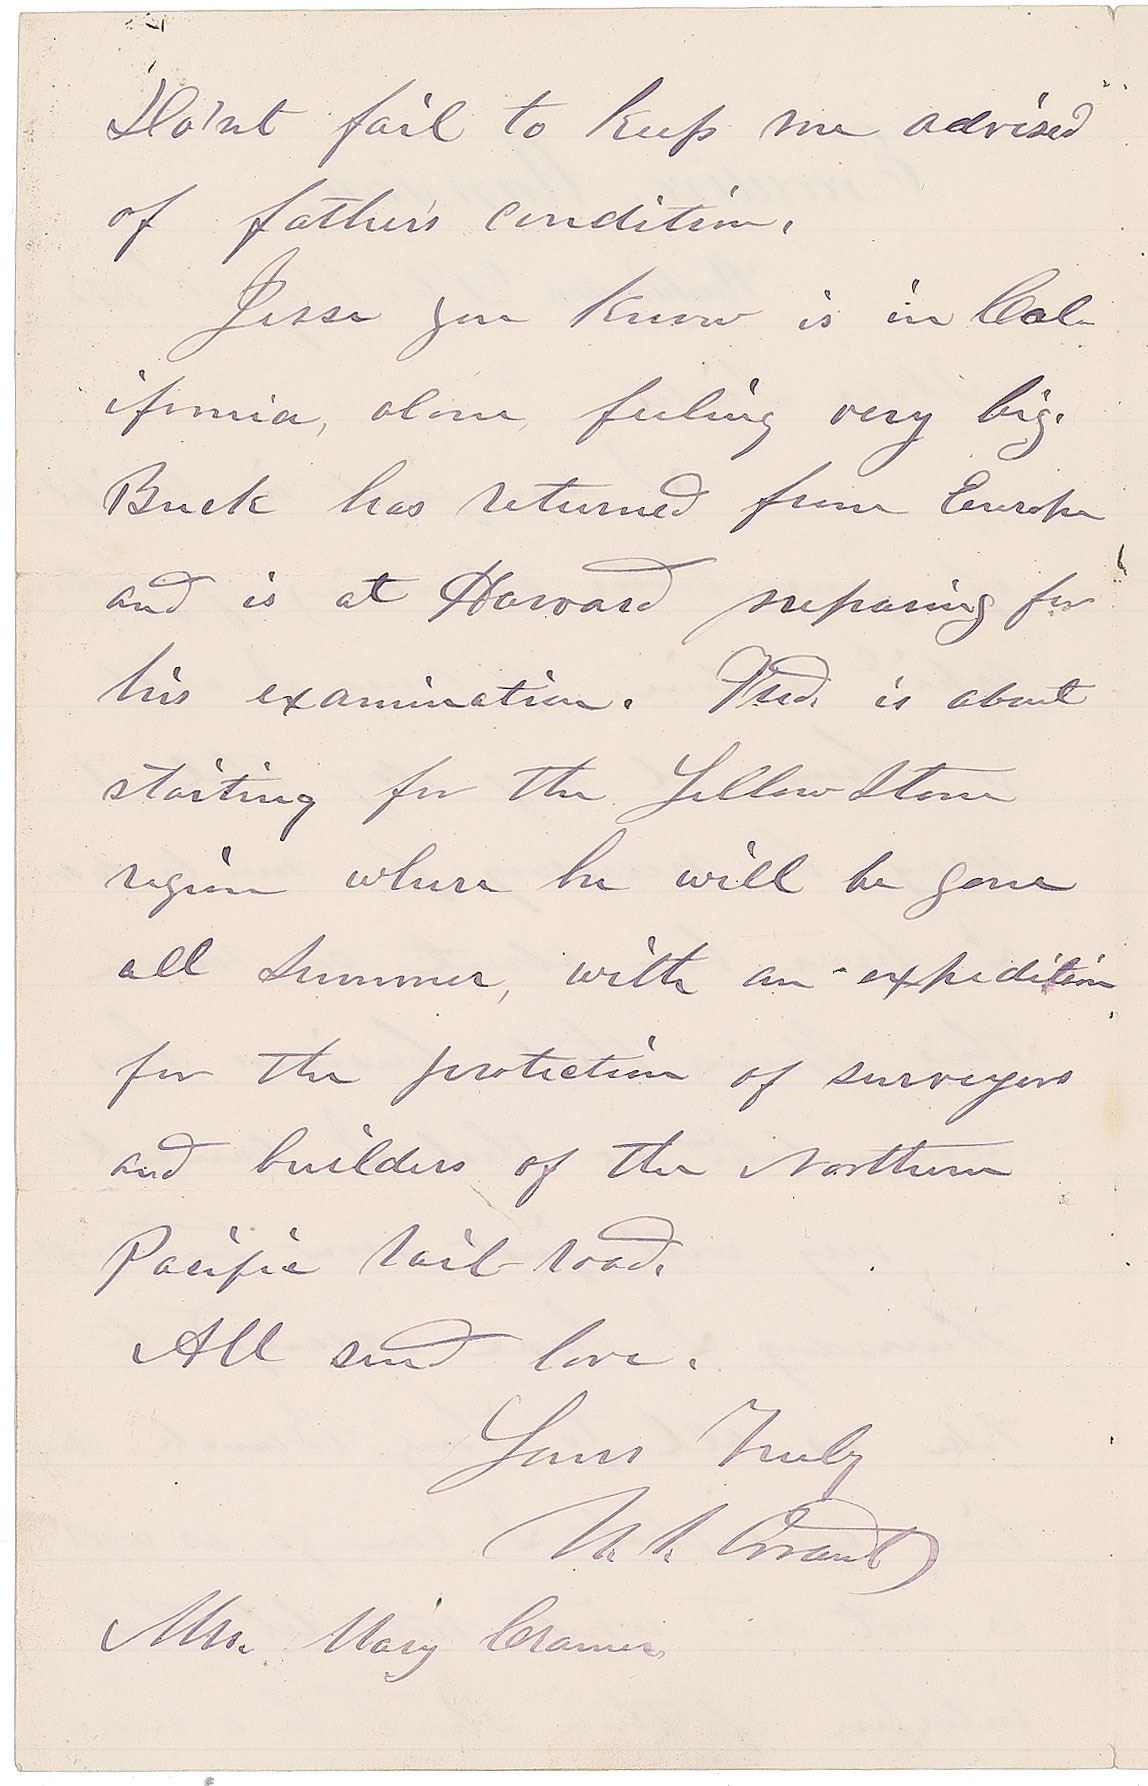 Do'nt fail to keep me advised
of father's condition.
Jesse you know is in Cal-
ifornia, alone, feeling very big.
Buck has returned from Europe
and is at Harvard preparing for
his examination. Fred. is about
starting for the Yellow Stone
region where he will be gone
all summer, with an expedition
for the protection of surveyors
and builders of the Northern
Pacific rail-road.
All send love.
Yours Truly
U. S. Grant
Mrs. Mary Cramer